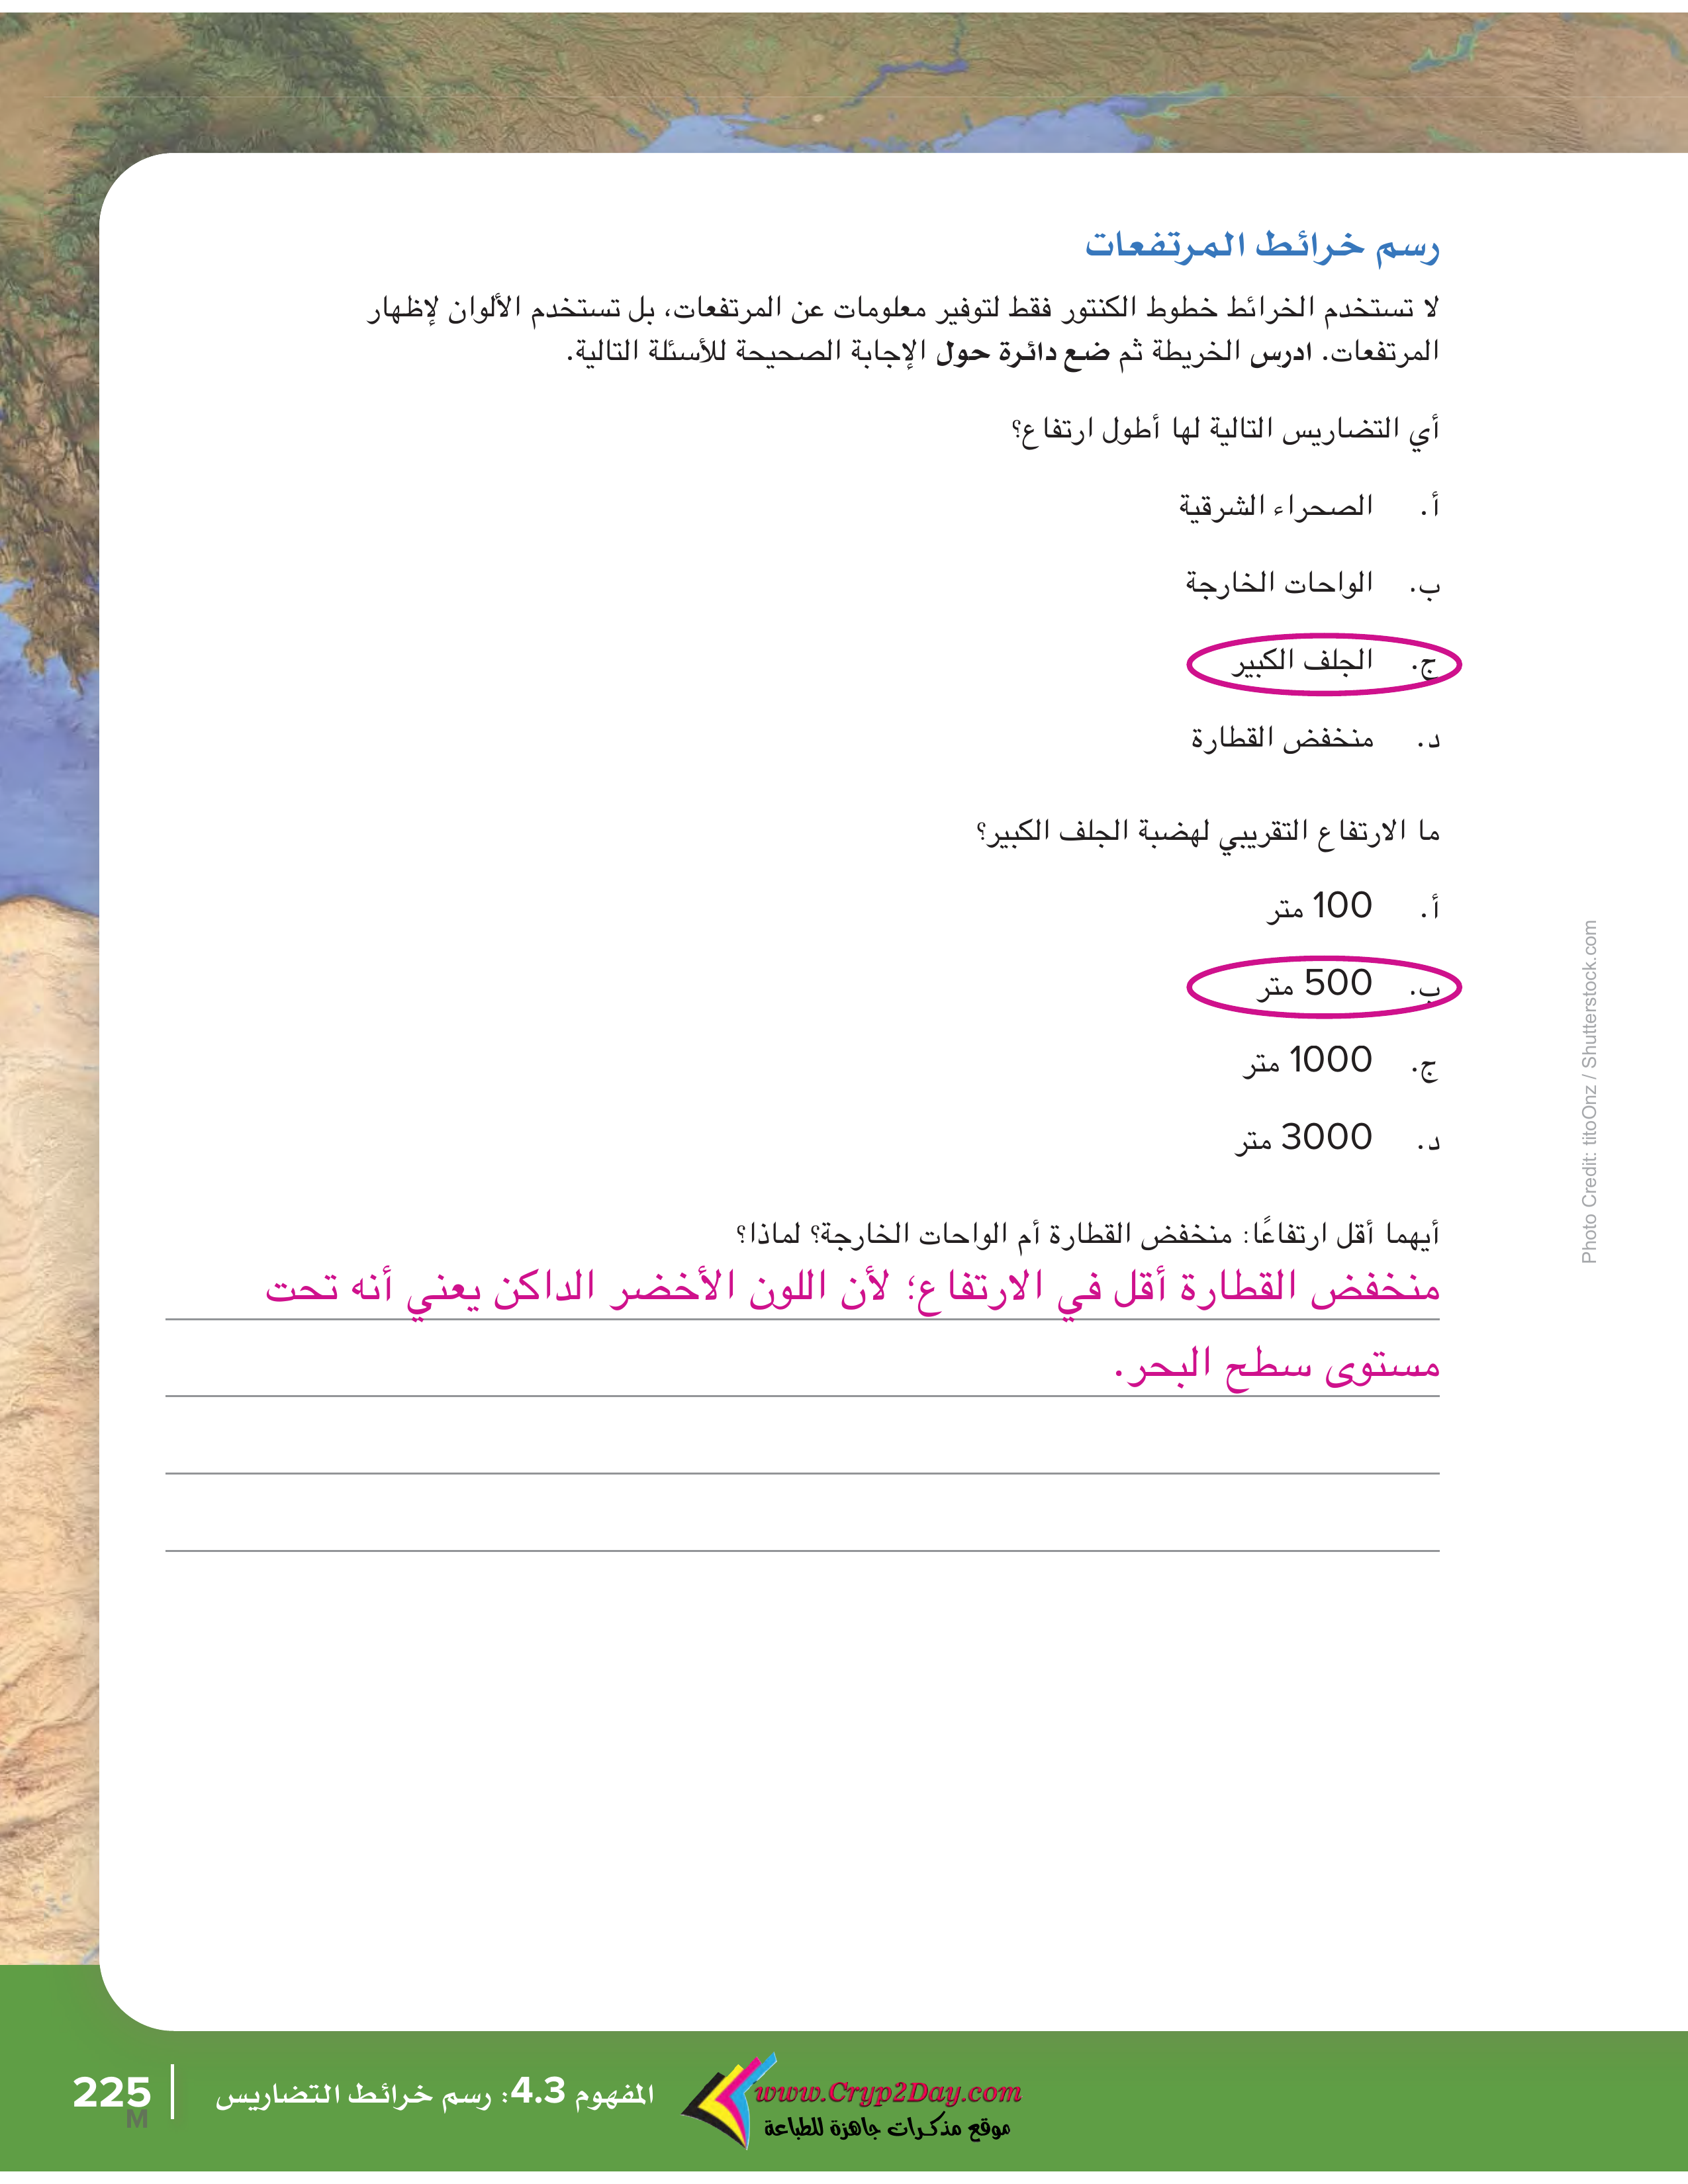 رسم خرائط المرتفعات
لا تستخدم الخرائط خطوط الكنتور فقط لتوفير معلومات عن المرتفعات، بل تستخدم الألوان لإظهار
المرتفعات. ادرس الخريطة ثم ضع دائرة حول الإجابة الصحيحة للأسئلة التالية.
أي التضاريس التالية لها أطول ارتفاع؟
أ. الصحراء الشرقية
ب. الواحات الخارجة
ج. الجلف الكبير
د. منخفض القطارة
ما الارتفاع التقريبي لهضبة الجلف الكبير؟
أ. 100 متر
ب. 500 متر
ج. 1000 متر
د. 3000 متر
أيهما أقل ارتفاعًا: منخفض القطارة أم الواحات الخارجة؟ لماذا؟
منخفض القطارة أقل في الارتفاع؛ لأن اللون الأخضر الداكن يعني أنه تحت
مستوى سطح البحر.
Photo Credit: titoOnz / Shutterstock.com
www.Cryp2Day.com
موقع مذكرات جاهزة للطباعة
المفهوم 4.3: رسم خرائط التضاريس
225
M